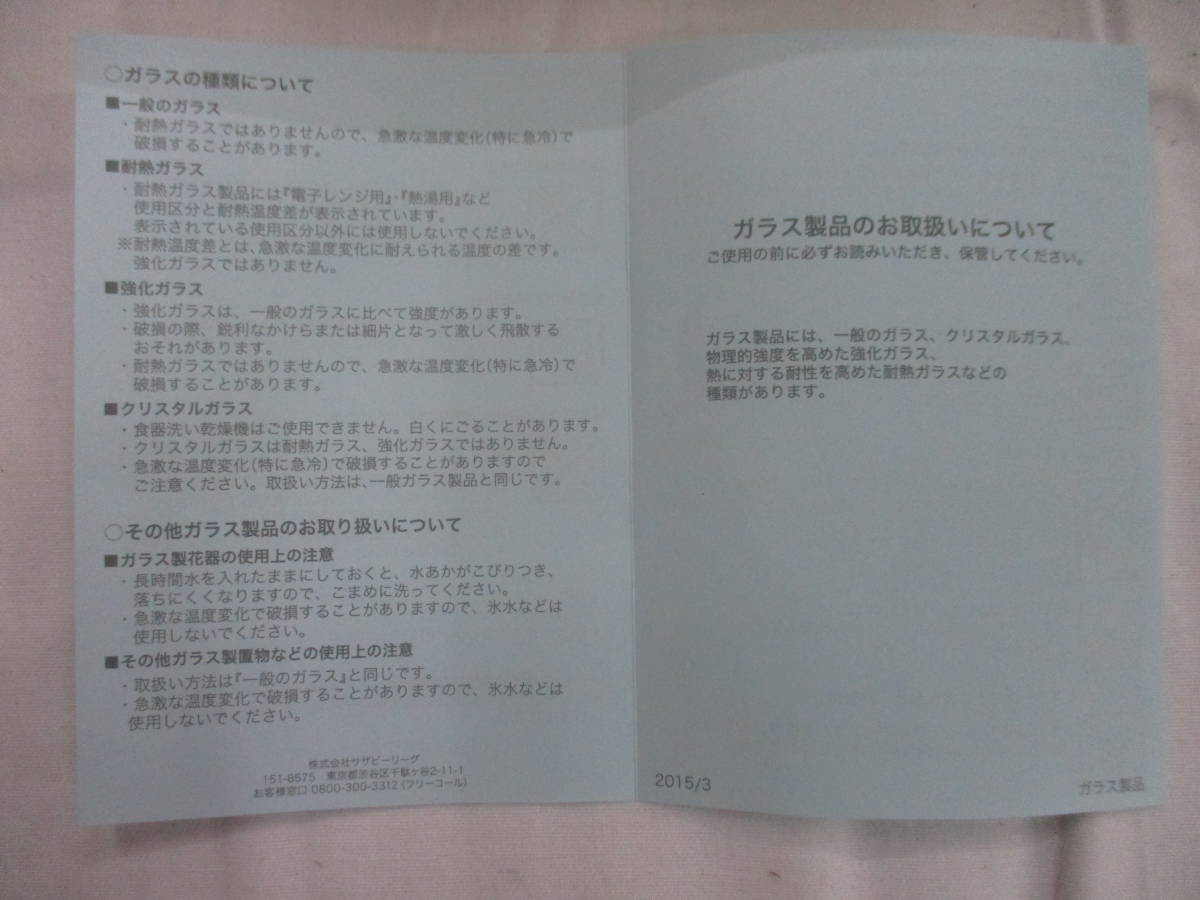 ○ガラスの種類について
■一般のガラス
・耐熱ガラスではありませんので、急激な温度変化(特に急冷)で
破損することがあります。
■耐熱ガラス
・耐熱ガラス製品には『電子レンジ用』・『熱湯用』など
使用区分と耐熱温度差が表示されています。
表示されている使用区分以外には使用しないでください。
※耐熱温度差とは、急激な温度変化に耐えられる温度の差です。
強化ガラスではありません。
■強化ガラス
・強化ガラスは、一般のガラスに比べて強度があります。
・破損の際、鋭利なかけらまたは細片となって激しく飛散する
おそれがあります。
・耐熱ガラスではありませんので、急激な温度変化(特に急冷)で
破損することがあります。
■クリスタルガラス
・食器洗い乾燥機はご使用できません。白くにごることがあります。
・クリスタルガラスは耐熱ガラス、強化ガラスではありません。
・急激な温度変化(特に急冷)で破損することがありますので
ご注意ください。取扱い方法は、一般ガラス製品と同じです。
○その他ガラス製品のお取り扱いについて
■ガラス製花器の使用上の注意
・長時間水を入れたままにしておくと、水あかがこびりつき、
落ちにくくなりますので、こまめに洗ってください。
・急激な温度変化で破損することがありますので、氷水などは
使用しないでください。
■その他ガラス製置物などの使用上の注意
・取扱い方法は『一般のガラス』と同じです。
・急激な温度変化で破損することがありますので、氷水などは
使用しないでください。
株式会社サザビーリーグ
151-8575 東京都渋谷区千駄ヶ谷2-11-1
お客様窓口 0800-300-3312 (フリーコール)
ガラス製品のお取扱いについて
ご使用の前に必ずお読みいただき、保管してください。
ガラス製品には、一般のガラス、クリスタルガラス、
物理的強度を高めた強化ガラス、
熱に対する耐性を高めた耐熱ガラスなどの
種類があります。
2015/3
ガラス製品